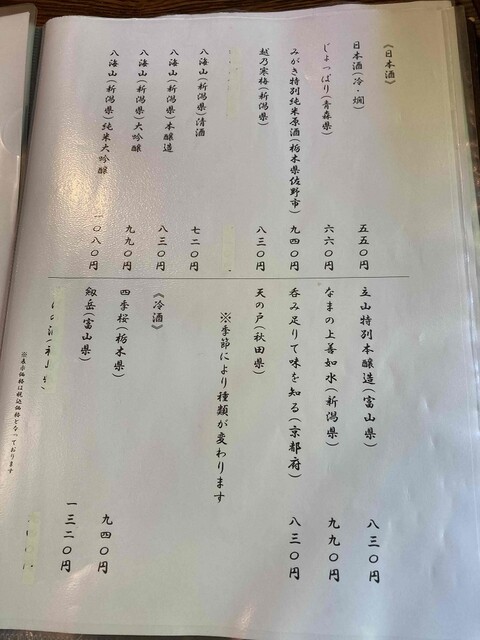 《日本酒》
日本酒(冷・燗) 五五〇円
じょっぱり(青森県) 六六〇円
みがき特別純米原酒(栃木県佐野市) 九四〇円
越乃寒梅(新潟県) 八三〇円
八海山(新潟県)清酒 七二〇円
八海山(新潟県)本醸造 八三〇円
八海山(新潟県)大吟醸 九九〇円
八海山(新潟県)純米大吟醸 一〇八〇円
立山特別本醸造(富山県) 八三〇円
なまの上善如水(新潟県) 九九〇円
呑み足りて味を知る(京都府) 八三〇円
天の戸(秋田県)
※季節により種類が変わります
《冷酒》
四季桜(栃木県) 九四〇円
剱岳(富山県) 一三二〇円
※表示価格は税込価格となっております